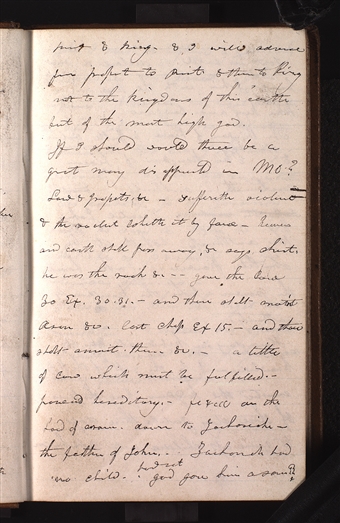 priest & King - & I will advance
from prophet to priest & then to King
not to the kingdoms of this earth
but of the most high god.
If I should would there be a
great many disappointed in MO?
Law & prophets &c - suffereth violence
& the violent taketh it by force - heaven
and earth shall pass away, & says christ
he was the rock &c - gave the law
30 Ex. 30.31. - and thou shalt anoint
Aron &c. last chap Ex 15. - and thou
shalt anoint them &c. - a tittle
of law which must be fulfilled. -
forever hereditary. - fixed on the
head of aaron. down to Zachariah -
the father of John. . Zachariah had
no child. had not god gave him a son?